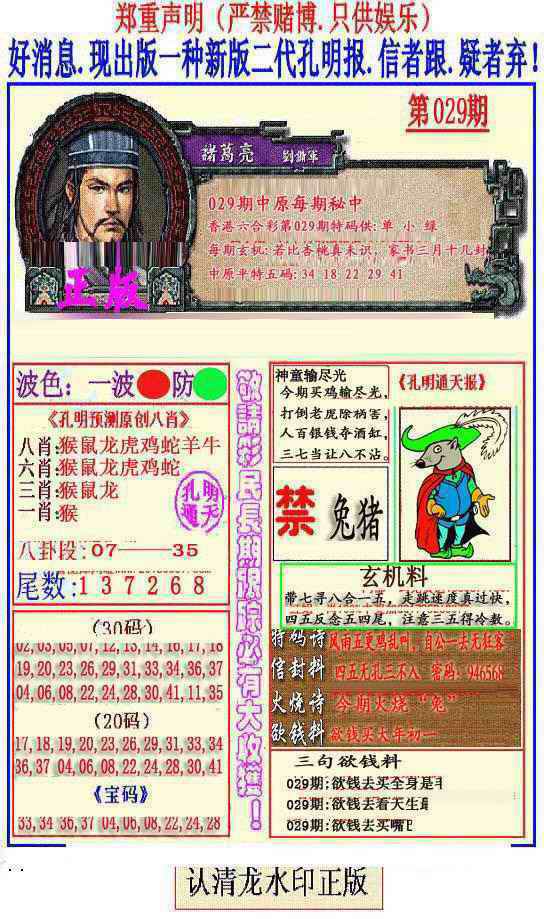 郑重声明（严禁赌博.只供娱乐）
好消息.现出版一种新版二代孔明报.信者跟.疑者弃！
第029期
諸葛亮
029期中原每期秘中
香港六合彩第029期特码供:单 小 绿
每期玄机:若比杏桃真未识，家书三月十几封
中原平特五码:34 18 22 29 41
正版
波色：一波 防
《孔明预测原创八肖》
八肖:猴鼠龙虎鸡蛇羊牛
六肖:猴鼠龙虎鸡蛇
三肖:猴鼠龙
一肖:猴
孔明
通天
八卦段:07——35
尾数:137268
(30码)
02,03,05,07,12,13,14,16,17,18
19,20,23,26,29,31,33,34,36,37
04,06,08,22,24,28,30,41,11,35
(20码)
17,18,19,20,23,26,29,31,33,34
36,37 04,06,08,22,24,28,30,41
《宝码》
33,34 36,37 04,06,08,22,24,28
敬請彩民長期跟踪必有大收獲！
神童输尽光
今期买鸡输尽光，
打倒老虎除祸害，
人百银钱夺酒缸，
三七当让八不沾。
《孔明通天报》
禁
兔猪
玄机料
带七寻八合一五，走跳速度真过快，
四五反念五四尾，注意三五得冷数。
特码诗 风雨五更鸡乱叫，自公一去无狂客
信封料 四五无孔三不入 密码：946568
火烧诗 今期火烧“兔”
欲钱料 欲钱买大年初一
三句欲钱料
029期:欲钱去买全身是
029期:欲钱去看天生
029期:欲钱去买嘴
认清龙水印正版